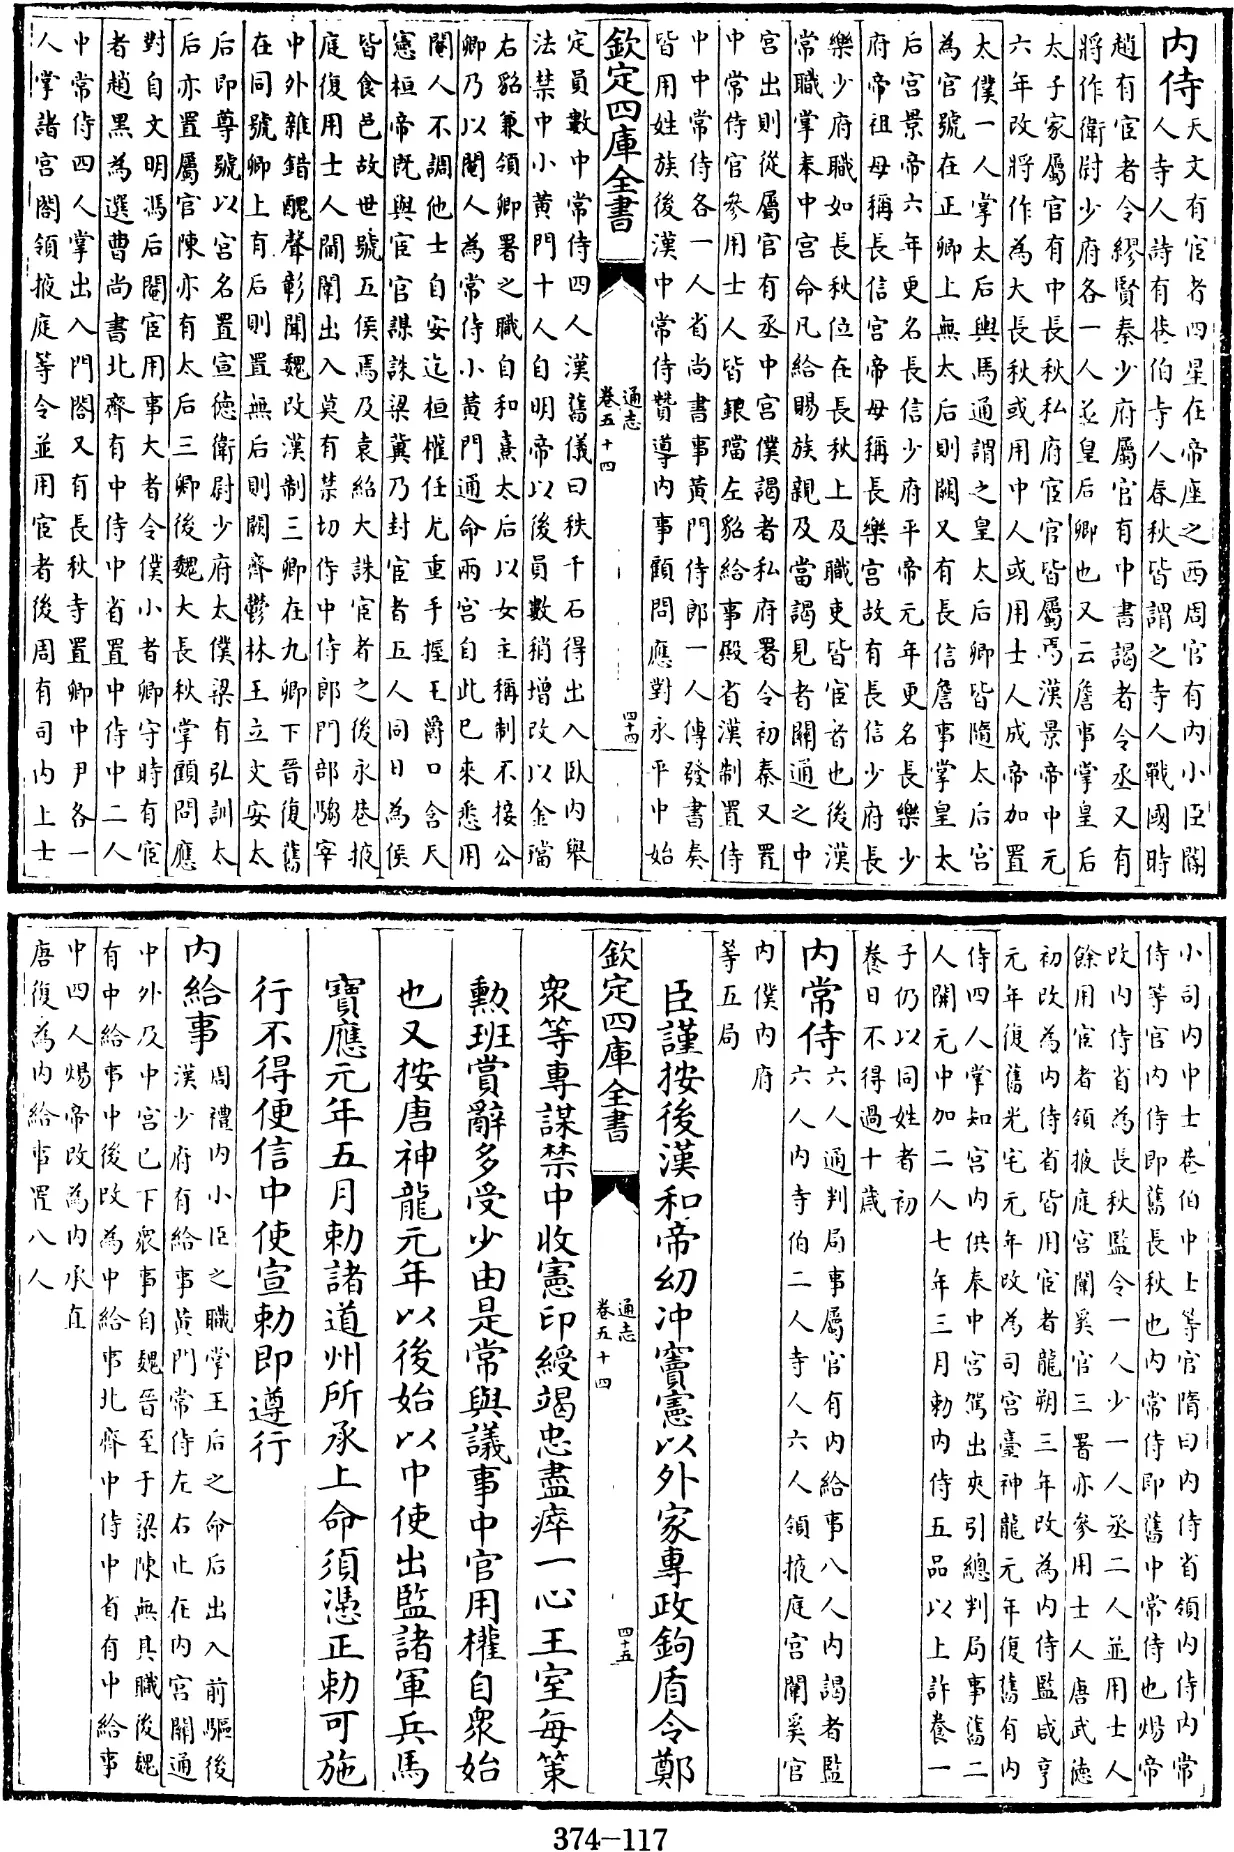 内侍
天文有宦者四星在帝座之西周官有内小臣閽
人寺人詩有巷伯寺人春秋皆謂之寺人戰國時
趙有宦者令繆賢秦少府屬官有中書謁者令丞又有
將作衛尉少府各一人並皇后卿也又云詹事掌皇后
太子家屬官有中長秋私府宦官皆屬焉漢景帝中元
六年改將作為大長秋或用中人或用士人成帝加置
太僕一人掌太后輿馬通謂之皇太后卿皆隨太后宫
為官號在正卿上無太后則闕又有長信詹事掌皇太
后宫景帝六年更名長信少府平帝元年更名長樂少
府帝祖母稱長信宫帝母稱長樂宫故有長信少府長
樂少府職如長秋位在長秋上及職吏皆宦者也後漢
常職掌奉中宫命凡給賜族親及當謁見者關通之中
宫出則從屬官有丞中宫僕謁者私府署令初秦又置
中常侍官參用士人皆銀璫左貂給事殿省漢制置侍
中中常侍各一人省尚書事黄門侍郎一人傳發書奏
皆用姓族後漢中常侍贊導内事顧問應對永平中始
欽定四庫全書
通志
卷五十四
四十四
定員數中常侍四人漢舊儀曰秩千石得出入臥内舉
法禁中小黄門十人自明帝以後員數稍增改以金璫
右貂兼領卿署之職自和熹太后以女主稱制不接公
卿乃以閹人為常侍小黄門通命兩宫自此已來悉用
閹人不調他士自安迄桓權任尤重手握王爵口含天
憲桓帝既與宦官謀誅梁冀乃封宦者五人同日為侯
皆食邑故世號五侯焉及袁紹大誅宦者之後永巷掖
庭復用士人閽闈出入莫有禁切侍中侍郎門部騶宰
中外雜錯醜聲彰聞魏改漢制三卿在九卿下晉復舊
在同號卿上有后則置無后則闕齊鬱林王立文安太
后即尊號以宫名置宣德衛尉少府太僕梁有弘訓太
后亦置屬官陳亦有太后三卿後魏大長秋掌顧問應
對自文明馮后閹宦用事大者令僕小者卿守時有宦
者趙黒為選曹尚書北齊有中侍中省置中侍中二人
中常侍四人掌出入門閤又有長秋寺置卿中尹各一
人掌諸宫閤領掖庭等令並用宦者後周有司内上士
小司内中士巷伯中士等官隋曰内侍省領内侍内常
侍等官内侍即舊長秋也内常侍即舊中常侍也煬帝
改内侍省為長秋監令一人少一人丞二人並用士人
餘用宦者領掖庭宫闈奚官三署亦參用士人唐武德
初改為内侍省皆用宦者龍朔三年改為内侍監咸亨
元年復舊光宅元年改為司宫臺神龍元年復舊有内
侍四人掌知宫内供奉中宫駕出夾引總判局事舊二
人開元中加二人七年三月勅内侍五品以上許養一
子仍以同姓者初
養日不得過十歲
内常侍
六人通判局事屬官有内給事八人内謁者監
六人内寺伯二人寺人六人領掖庭宫闈奚官
内僕内府
等五局
臣謹按後漢和帝幼冲竇憲以外家專政鉤盾令鄭
欽定四庫全書
通志
卷五十四
四十五
衆等專謀禁中收憲印綬竭忠盡瘁一心王室每策
勲班賞辭多受少由是常與議事中官用權自衆始
也又按唐神龍元年以後始以中使出監諸軍兵馬
寶應元年五月勅諸道州所承上命須憑正勅可施
行不得便信中使宣勅即遵行
内給事
周禮内小臣之職掌王后之命后出入前驅後
漢少府有給事黄門常侍左右止在内宫關通
中外及中宫已下衆事自魏晉至于梁陳無其職後魏
有中給事中後改為中給事北齊中侍中省有中給事
中四人煬帝改為内承直
唐復為内給事置八人
374-117